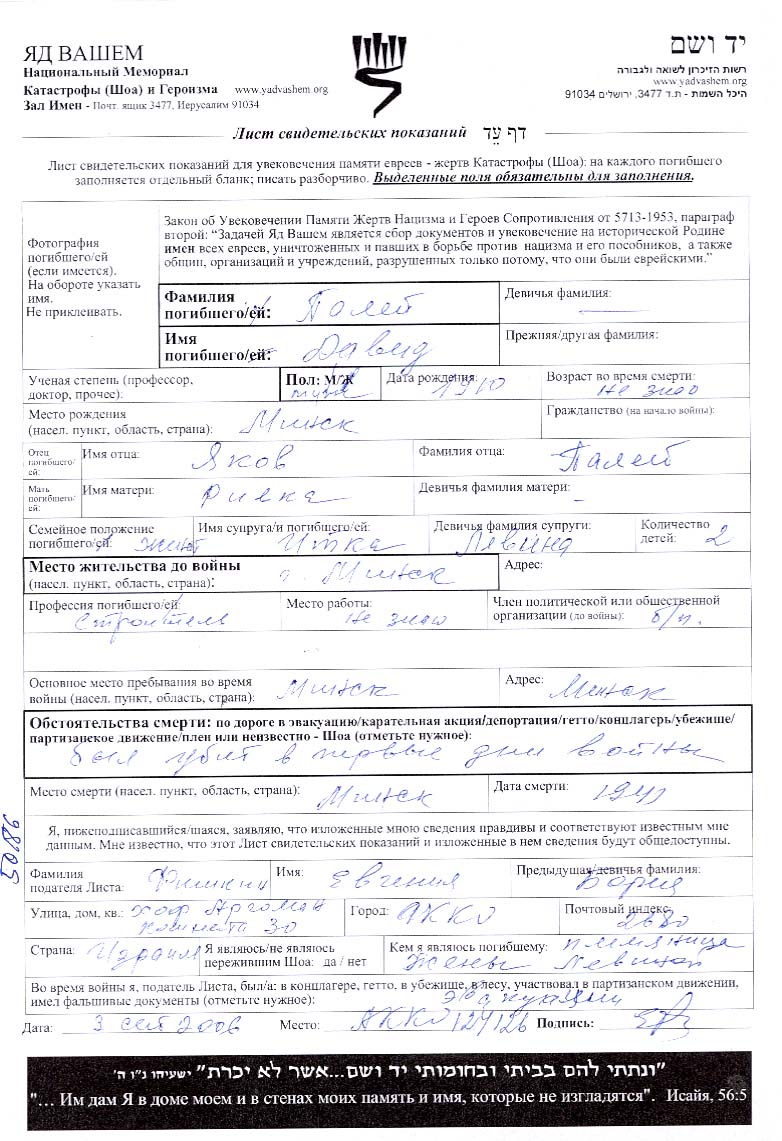 ЯД ВАШЕМ
Национальный Мемориал
Катастрофы (Шоа) и Героизма www.yadvashem.org
Зал Имен - Почт. ящик 3477, Иерусалим 91034
יד ושם
רשות הזיכרון לשואה ולגבורה
www.yadvashem.org
היכל השמות - ת.ד 3477, ירושלים 91034
Лист свидетельских показаний דף עד
Лист свидетельских показаний для увековечения памяти евреев - жертв Катастрофы (Шоа): на каждого погибшего
заполняется отдельный бланк; писать разборчиво. Выделенные поля обязательны для заполнения.
Фотография
погибшего/ей
(если имеется).
На обороте указать
имя.
Не приклеивать.
Закон об Увековечении Памяти Жертв Нацизма и Героев Сопротивления от 5713-1953, параграф
второй: “Задачей Яд Вашем является сбор документов и увековечение на исторической Родине
имен всех евреев, уничтоженных и павших в борьбе против нацизма и его пособников, а также
общин, организаций и учреждений, разрушенных только потому, что они были еврейскими.”
Фамилия
погибшего/ей: Палей
Девичья фамилия:
Имя
погибшего/ей: Давид
Прежняя/другая фамилия:
Ученая степень (профессор,
доктор, прочее):
Пол: М/Ж
Дата рождения: 1910
Возраст во время смерти:
не знаю
Место рождения
(насел. пункт, область, страна): Минск
Гражданство (на начало войны):
Отец
погибшего/
ей:
Имя отца: Яков
Фамилия отца: Палей
Мать
погибшего/
ей:
Имя матери: Ривка
Девичья фамилия матери: -
Семейное положение
погибшего/ей: женат
Имя супруга/и погибшего/ей:
Итка
Девичья фамилия супруги:
Левина
Количество
детей: 2
Место жительства до войны
(насел. пункт, область, страна): г. Минск
Адрес:
Профессия погибшего/ей:
Строитель
Место работы:
не знаю
Член политической или общественной
организации (до войны): б/п.
Основное место пребывания во время
войны (насел. пункт, область, страна): Минск
Адрес:
Минск
Обстоятельства смерти: по дороге в эвакуацию/карательная акция/депортация/гетто/концлагерь/убежище/
партизанское движение/плен или неизвестно - Шоа (отметьте нужное):
был убит в первые дни войны
Место смерти (насел. пункт, область, страна): Минск
Дата смерти: 1941
50186
Я, нижеподписавшийся/шаяся, заявляю, что изложенные мною сведения правдивы и соответствуют известным мне
данным. Мне известно, что этот Лист свидетельских показаний и изложенные в нем сведения будут общедоступны.
Фамилия
подателя Листа: Фишкин
Имя: Евгения
Предыдущая/девичья фамилия:
Улица, дом, кв.: хоф Аргаман
комната 30
Город: Акко
Почтовый индекс
Страна: Израиль
Я являюсь/не являюсь
пережившим Шоа: да / нет
Кем я являюсь погибшему: племянница
жены Левиной
Во время войны я, податель Листа, был/а: в концлагере, гетто, в убежище, в лесу, участвовал в партизанском движении,
имел фальшивые документы (отметьте нужное): эвакуации
Дата: 3 сент 2006 Место: Акко Подпись:
"ונתתי להם בביתי ובחומותי יד ושם...אשר לא יכרת" ישעיהו נ"ו ה'
"... Им дам Я в доме моем и в стенах моих память и имя, которые не изгладятся". Исайя, 56:5